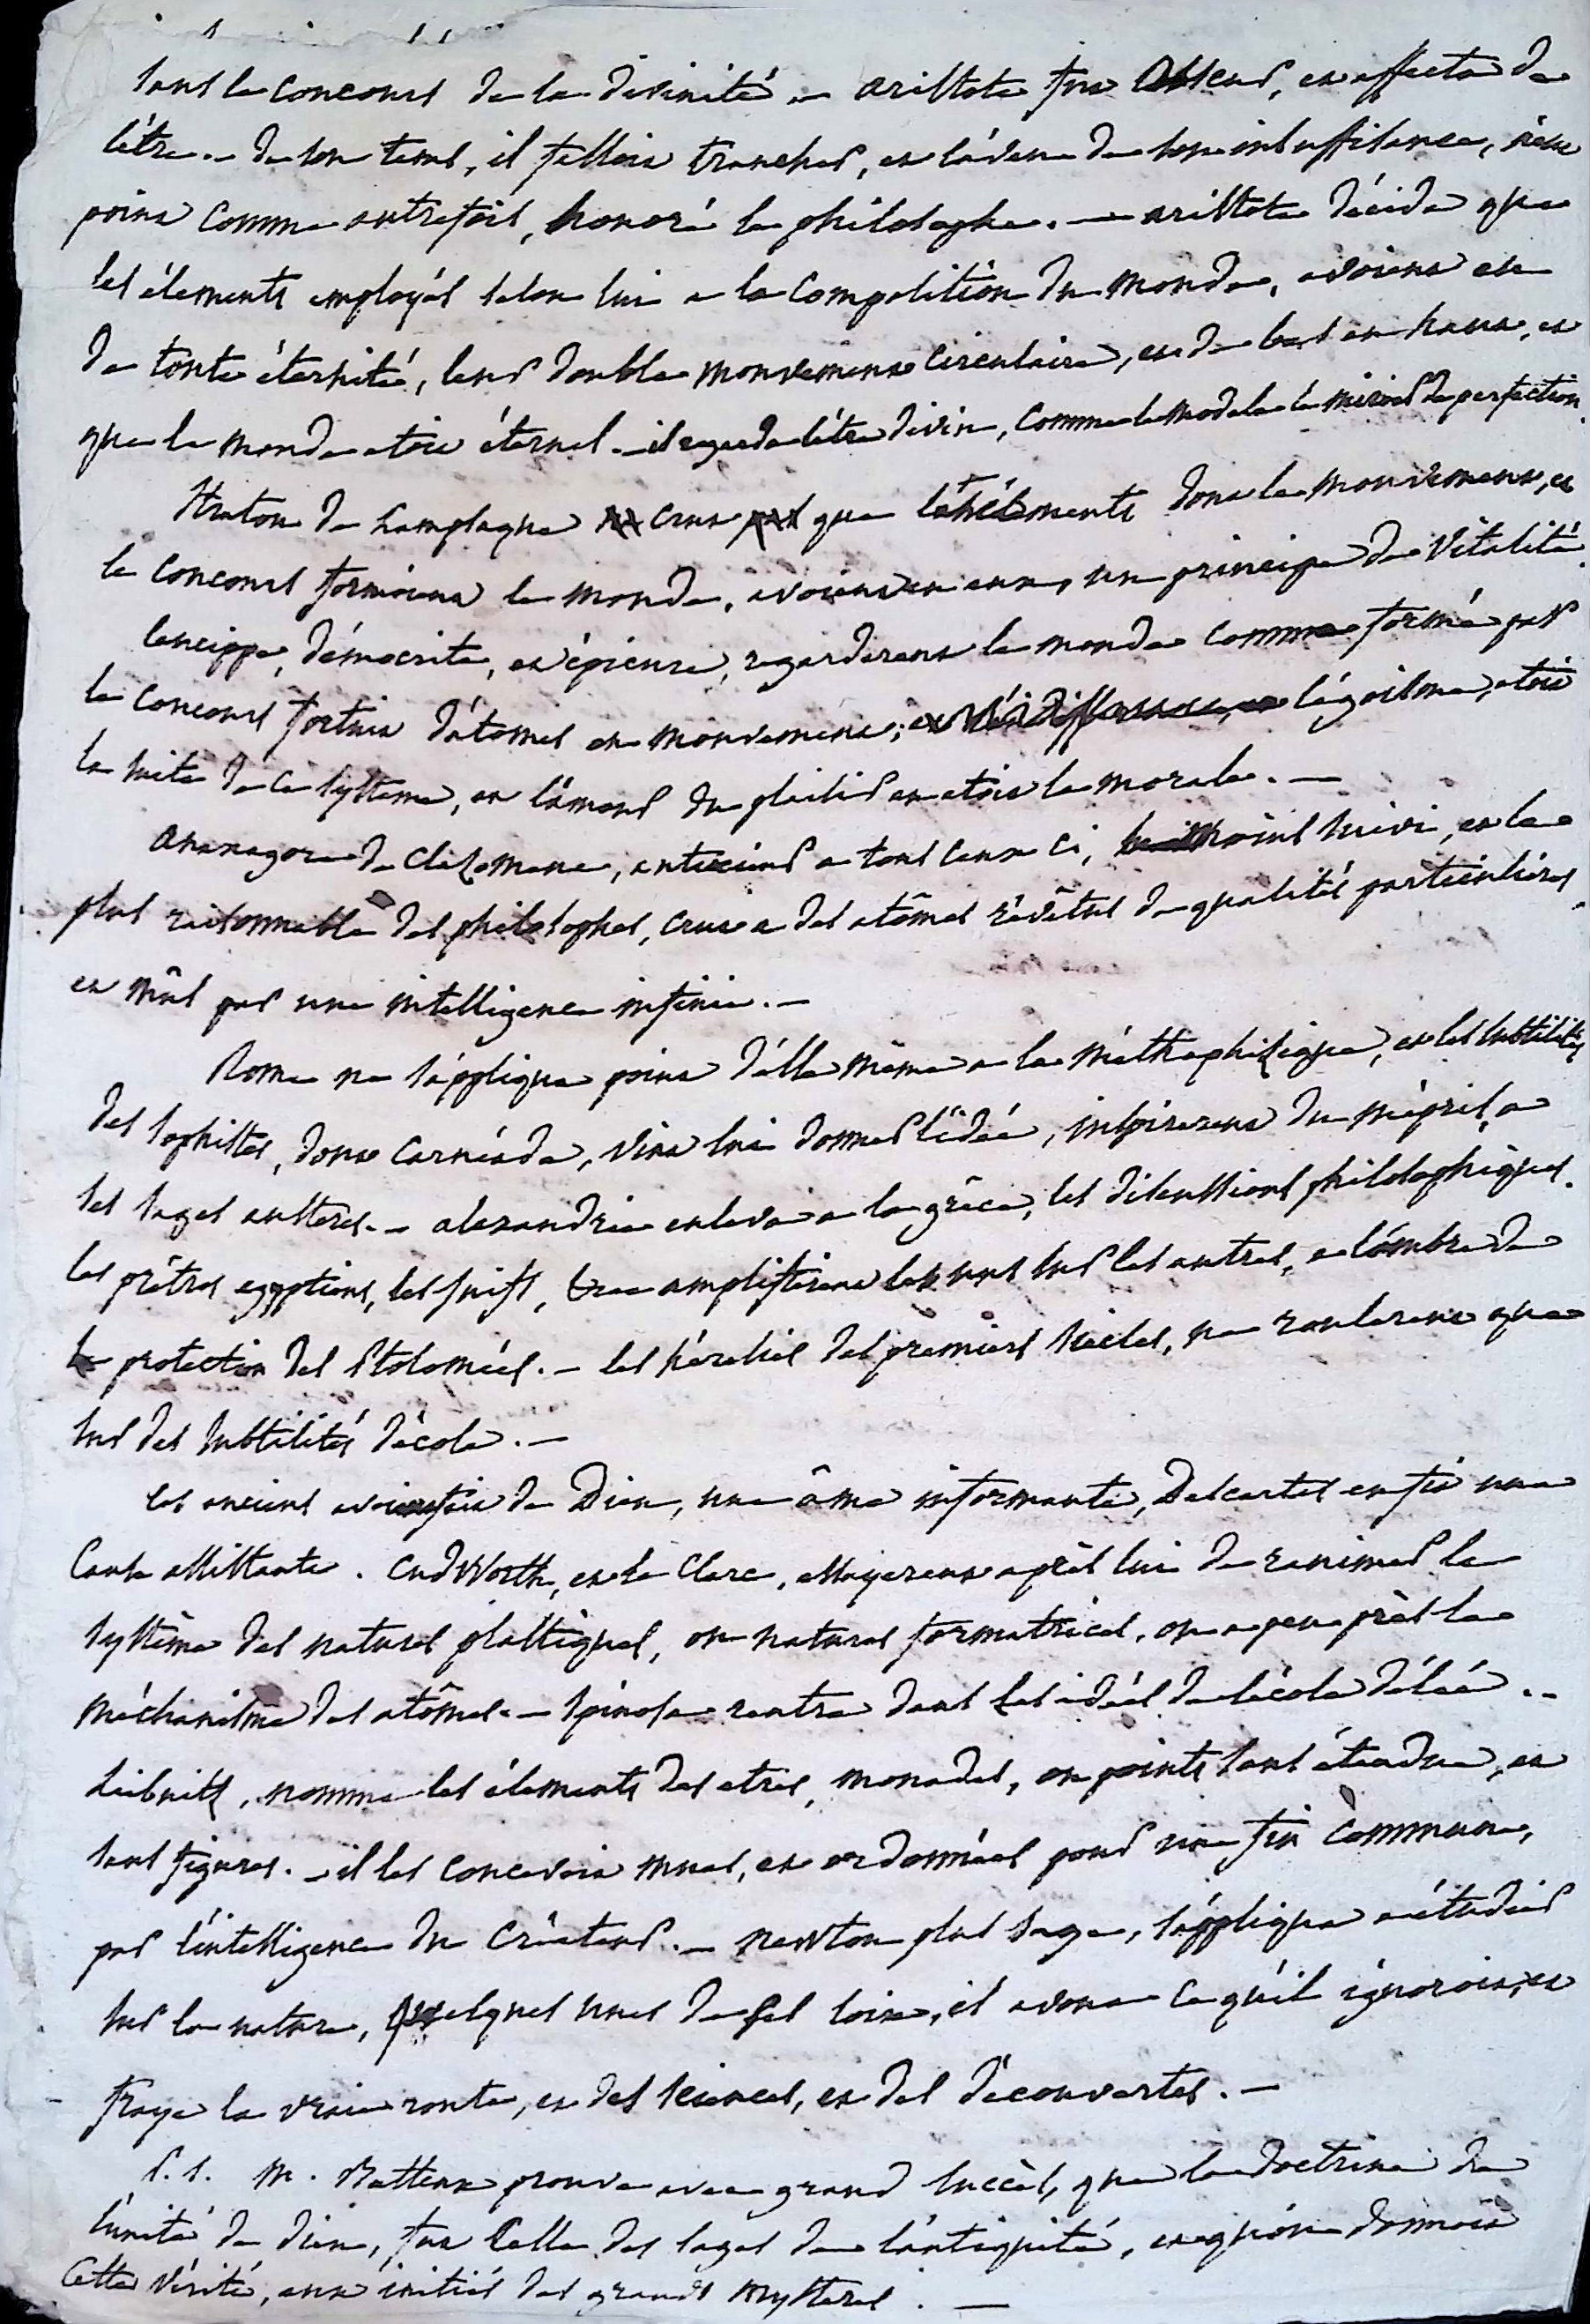 sans le concours de la divinité. — aristote fut obscur, et affecta de
l'être. — de son tems, il falloit trancher, et l'aveu de son insuffisance, n'eut
point comme autrefois, honoré le philosophe. — aristote décida que
les élements employés selon lui a la composition du monde, avoient eu
de toute éternité, leur double mouvement circulaire, et de bas en haut, et
que le monde etoit éternel. — il regarda l'être divin, comme le modele le miroir de perfection.
Straton de Lampsaque crut que les élements dont le mouvement, et
le concours formoient le monde, avoient en eux, un principe de vitalité.
leucippe, démocrite, et épicure, regarderent le monde comme formé par
le concours fortuit d'atomes en mouvement; l'égoisme, etoit
la suite de ce systeme, et l'amour du plaisir en etoit la morale. —
Anaxagore de Clazomene, anterieur a tous ceux ci, moins suivi, et le
plus raisonnable des philosophes, crut a des atômes révêtus de qualités particulieres,
et mûs par une intelligence infinie. —
Rome ne s'appliqua point d'elle même a la méthaphizique, et les subtilités
des sophistes, dont Carnéade, vint lui donner l'idée, inspirerent du mépris, a
ses sages austeres. — alexandrie enleva a la grêce, les discussions philosophiques.
les prêtres egyptiens, les juifs, &c amplifierent les uns sur les autres, a l'ombre de
la protection des Ptolomées. — les hérésies des premiers siecles, ne roulerent que
sur des subtilités d'école. —
les anciens avoient fait de Dieu, une âme informante, Descartes en fit une
Cause assistante. CudWorth, et le Clerc, essayerent après lui de ranimer le
systême des natures plastiques, ou natures formatrices, ou a peu près le
méchanisme des atômes. — Spinosa rentra dans les idées de l'école d'élée. —
Leibnitz, nomme les élements des etres, monades, ou points sans étendue, et
sans figures. — il les concevoit mues, et ordonnées pour une fin commune,
par l'intelligence du Créateur. — Newton plus sage, s'appliqua a étudier
sur la nature, quelques unes de ses loix, il avoua ce qu'il ignoroit, et
fraya la vraie route, et des sciences, et des découvertes. —
P. S. M. Batteux prouve avec grand succès, que la doctrine de
l'unité de dieu, fut Celle des sages de l'antiquité, et qu'on donnoit
Cette vérité, aux initiés des grands mysteres. —